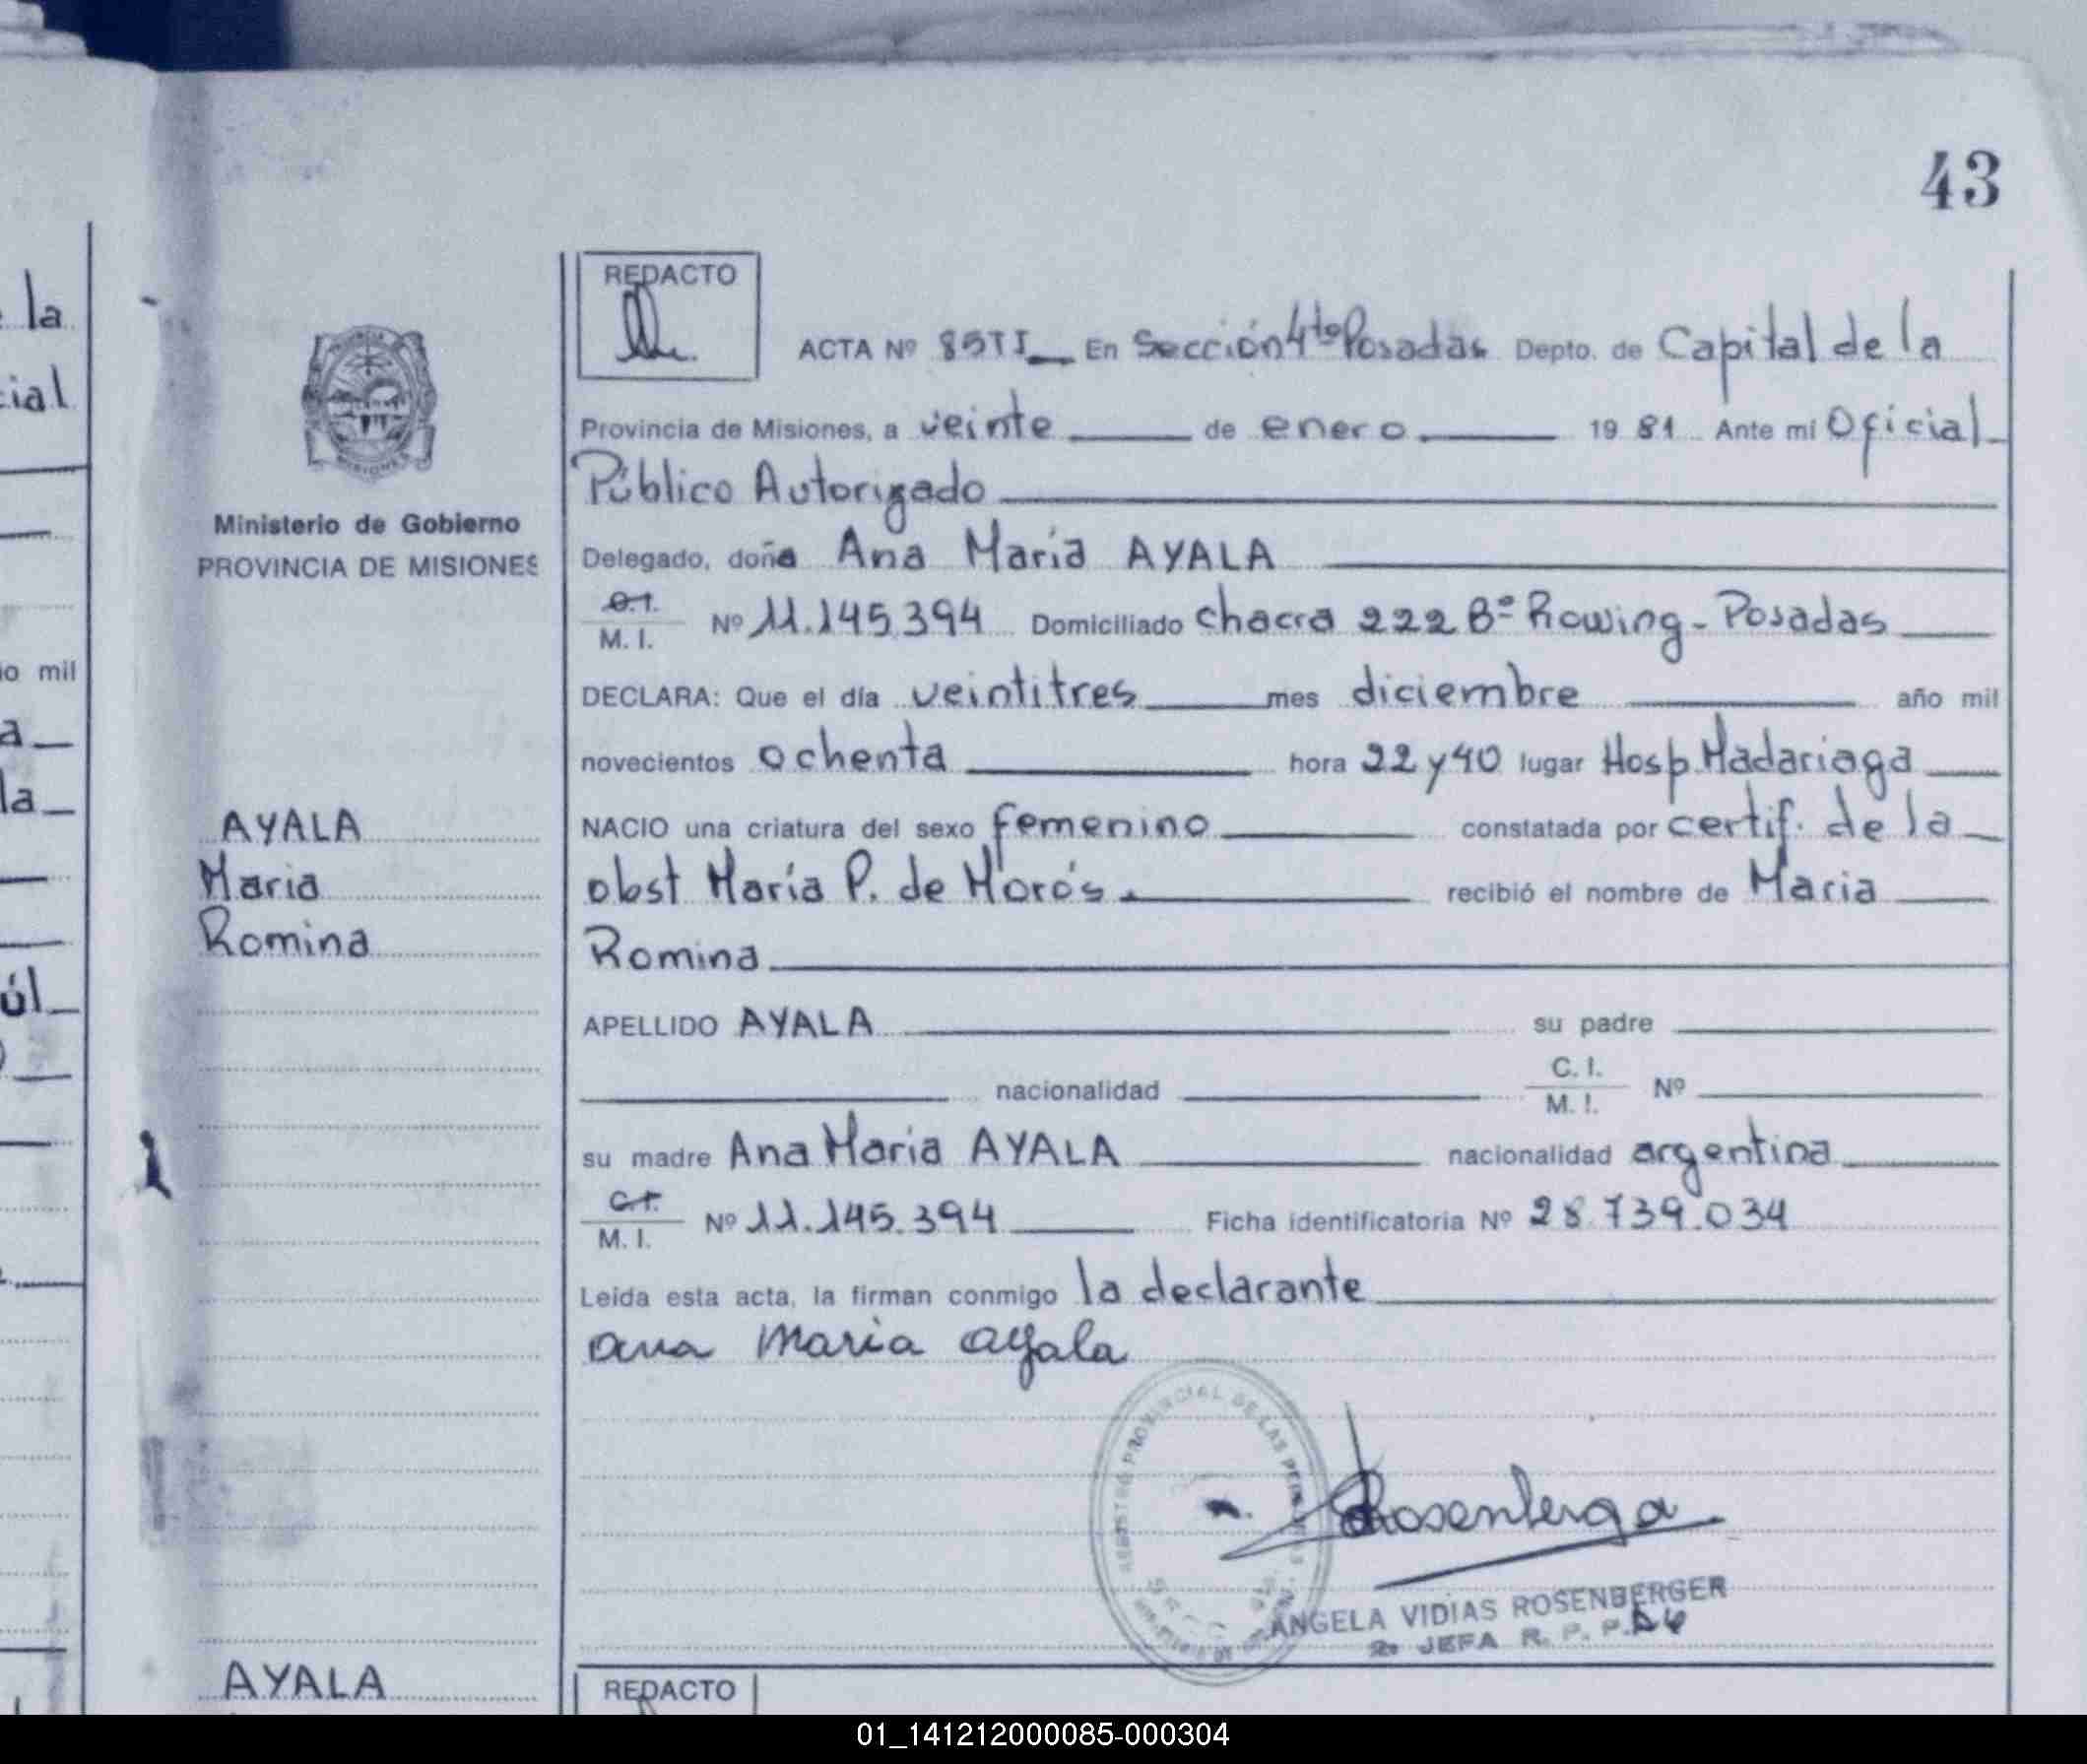 43
la
cial
o mil
a
la
úl
Ministerio de Gobierno
PROVINCIA DE MISIONES
AYALA
Maria
Romina
REDACTO
ACTA Nº 85TI En Sección 4ta Posadas Depto. de Capital de la
Provincia de Misiones, a veinte de enero 19 81 Ante mi Oficial
Público Autorizado
Delegado, doña Ana Maria AYALA
C.I. M. I. Nº 11.145.394 Domiciliado chacra 222 Bº Rowing - Posadas
DECLARA: Que el día veintitres mes diciembre año mil
novecientos ochenta hora 22 y 40 lugar Hosp. Madariaga
NACIO una criatura del sexo femenino constatada por certif. de la
obst María P. de Morós. recibió el nombre de Maria
Romina
APELLIDO AYALA su padre
nacionalidad C. I. M. I. Nº
su madre Ana Maria AYALA nacionalidad argentina
C.I. M. I. Nº 11.145.394 Ficha identificatoria Nº 28.739.034
Leida esta acta, la firman conmigo la declarante
ana maria ayala
PROVINCIAL DE LAS
Rosenberga
ANGELA VIDIAS ROSENBERGER
2a JEFA R. P. P.
AYALA
REDACTO
01_141212000085-000304